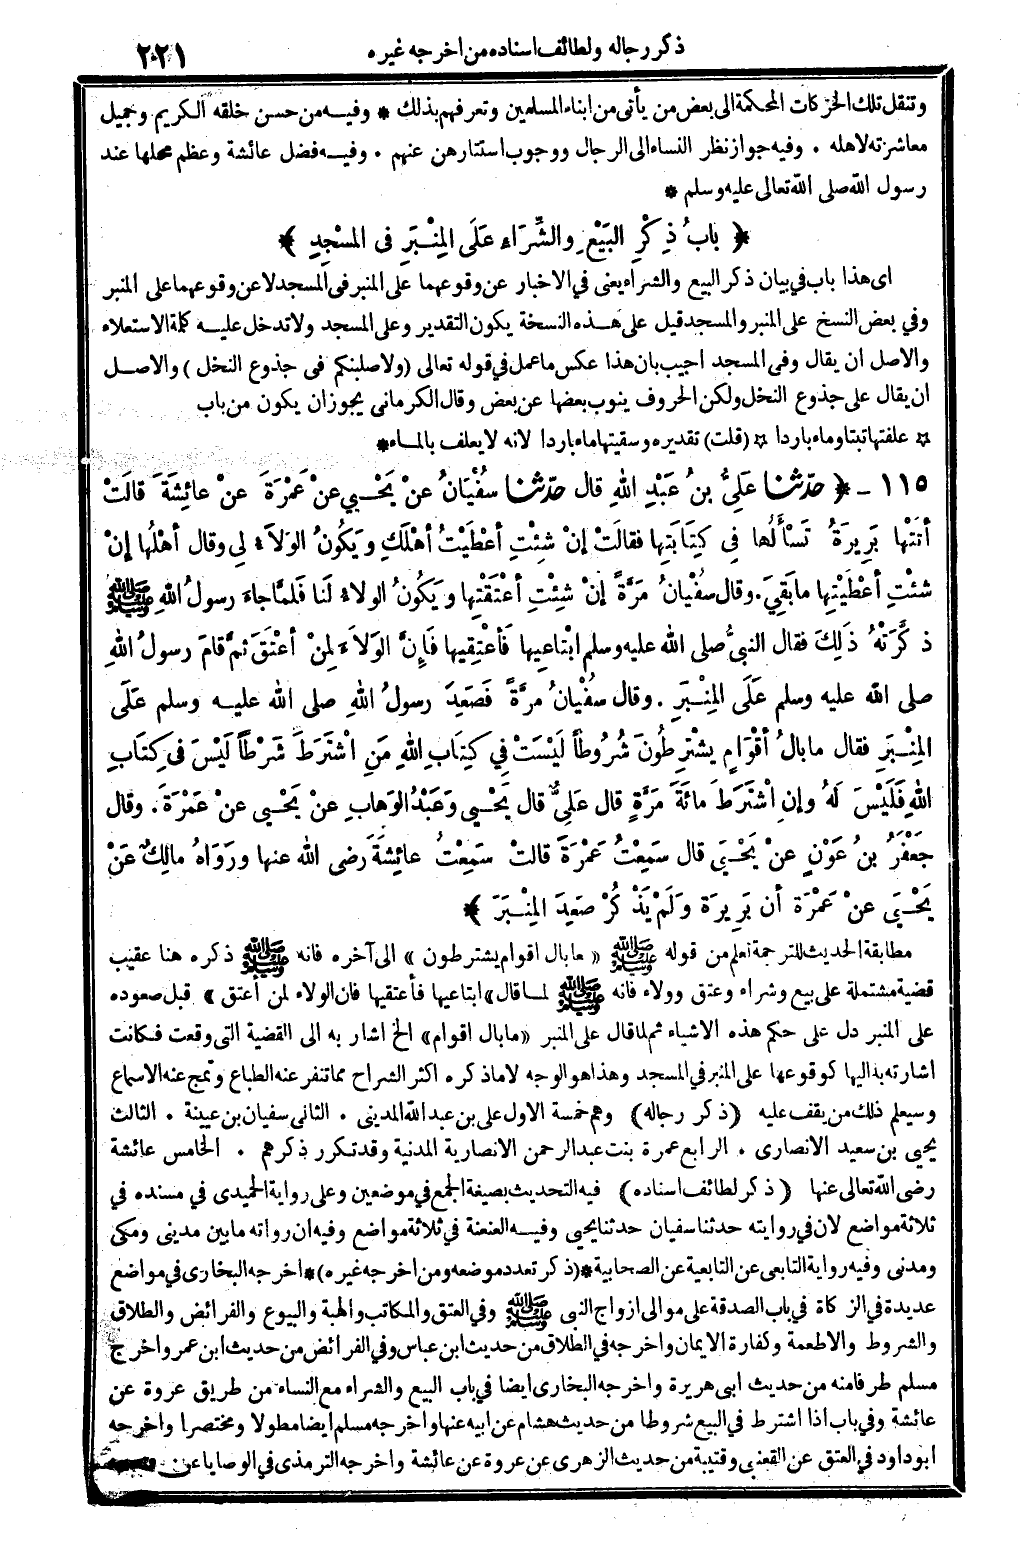 ذكر رجاله ولطائف اسناده من اخرجه غيره ٢٢١
وتنقل تلك الحركات المحكمة الى بعض من يأتى من ابناء المسلمين وتعرفهم بذلك * وفيه من حسن خلقه الكريم وجميل
معاشرته لاهله . وفيه جواز نظر النساء الى الرجال ووجوب استتارهن عنهم . وفيه فضل عائشة وعظم محلها عند
رسول الله صلى الله تعالى عليه وسلم *
﴿ بابُ ذِكْرِ البَيْعِ والشِّرَاءِ عَلَى المِنْبَرِ فى المَسْجِدِ ﴾
اى هذا باب في بيان ذكر البيع والشراء يعنى في الاخبار عن وقوعهما على المنبر فى المسجد لا عن وقوعهما على المنبر
وفي بعض النسخ على المنبر والمسجد قيل على هذه النسخة يكون التقدير وعلى المسجد ولا تدخل عليه كلمة الاستعلاء
والاصل ان يقال وفى المسجد اجيب بان هذا عكس ما عمل في قوله تعالى (ولاصلبنكم فى جذوع النخل) والاصل
ان يقال على جذوع النخل ولكن الحروف ينوب بعضها عن بعض وقال الكرمانى يجوز ان يكون من باب
☆ علفتها تبنا وماء باردا ☆ (قلت) تقديره وسقيتها ماء باردا لانه لا يعلف بالماء *
١١٥ - ﴿ حدّثنا عَلِىُّ بنُ عَبْدِ اللهِ قال حدّثنا سُفْيَانُ عنْ يَحْيى عنْ عَمْرَةَ عنْ عائِشَةَ قالَتْ
أتَتْها بَرِيرَةُ تَسْألُها فى كِتَابَتِها فقالَتْ إنْ شِئْتِ أعْطَيْتُ أهْلَكِ وَيَكُونُ الوَلاَءُ لِى وقال أهْلُها إنْ
شئْتِ أعْطَيْتِها مابَقِىَ . وقال سُفْيانُ مَرَّةً إنْ شِئْتِ أعْتَقْتِها وَيَكُونُ الولاءُ لَنا فَلمَّا جاءَ رسولُ اللهِ ﷺ
ذكَّرَتْهُ ذلِكَ فقال النبىُّ صلى الله عليه وسلم ابْتاعِيها فَأعْتِقِيها فَإِنَّ الوَلاَءَ لِمنْ أعْتَقَ ثمَّ قامَ رسولُ اللهِ
صلى الله عليه وسلم عَلَى المِنْبَرِ . وقال سفْيانُ مرَّةً فَصَعِدَ رسولُ اللهِ صلى الله عليه وسلم عَلَى
المِنْبَرِ فقال ما بالُ أقْوَامٍ يشْتَرِطُونَ شُرُوطاً لَيْسَتْ فِي كِتَابِ اللهِ مَنِ اشْتَرَطَ شَرْطاً لَيْسَ فى كِتَابِ
اللهِ فَلَيْسَ لَهُ وإنِ اشْتَرَطَ مائَةَ مَرَّةٍ قال عَلِىٌّ قال يَحْيى وَعَبْدُ الوَهابِ عنْ يَحْيى عنْ عَمْرَةَ . وقال
جَعْفَرُ بنُ عَوْنٍ عنْ يَحْيَى قال سَمِعْتُ عَمْرَةَ قالتْ سَمِعْتُ عائِشَةَ رضى الله عنها ورَوَاهُ مالِكٌ عَنْ
يَحْيَى عنْ عَمْرَةَ أن بَرِيرَةَ وَلَمْ يَذْكُرْ صَعِدَ المِنْبَرَ ﴾
مطابقة الحديث للترجمة تعلم من قوله ﷺ «ما بال اقوام يشترطون» الى آخره فانه ﷺ ذكره هنا عقيب
قضية مشتملة على بيع وشراء وعتق وولاء فانه ﷺ لما قال «ابتاعيها فأعتقيها فان الولاء لمن أعتق» قبل صعوده
على المنبر دل على حكم هذه الاشياء ثم لما قال على المنبر «ما بال اقوام» الخ اشار به الى القضية التى وقعت فكانت
اشارته بذا اليها كوقوعها على المنبر في المسجد وهذا هو الوجه لا ما ذكره اكثر الشراح مما تنفر عنه الطباع وتمج عنه الاسماع
وسيعلم ذلك من يقف عليه (ذكر رجاله) وهم خمسة الاول على بن عبد الله المدينى . الثانى سفيان بن عيينة . الثالث
يحيى بن سعيد الانصارى . الرابع عمرة بنت عبد الرحمن الانصارية المدنية وقد تكرر ذكرهم . الخامس عائشة
رضى الله تعالى عنها (ذكر لطائف اسناده) فيه التحديث بصيغة الجمع في موضعين وعلى رواية الحميدى في مسنده في
ثلاثة مواضع لان في روايته حدثنا سفيان حدثنا يحيى وفيه العنعنة في ثلاثة مواضع وفيه ان رواته ما بين مدينى ومكى
ومدنى وفيه رواية التابعى عن التابعية عن الصحابية * (ذكر تعدد موضعه ومن اخرجه غيره) * اخرجه البخارى في مواضع
عديدة في الزكاة في باب الصدقة على موالى ازواج النبى ﷺ وفي العتق والمكاتب والهبة والبيوع والفرائض والطلاق
والشروط والاطعمة وكفارة الايمان واخرجه في الطلاق من حديث ابن عباس وفي الفرائض من حديث ابن عمر واخرج
مسلم طرفا منه من حديث ابى هريرة واخرجه البخارى ايضا في باب البيع والشراء مع النساء من طريق عروة عن
عائشة وفي باب اذا اشترط في البيع شروطا من حديث هشام عن ابيه عنها واخرجه مسلم ايضا مطولا ومختصرا واخرجه
ابو داود في العتق عن القعنبى وقتيبة من حديث الزهرى عن عروة عن عائشة واخرجه الترمذى في الوصايا عن